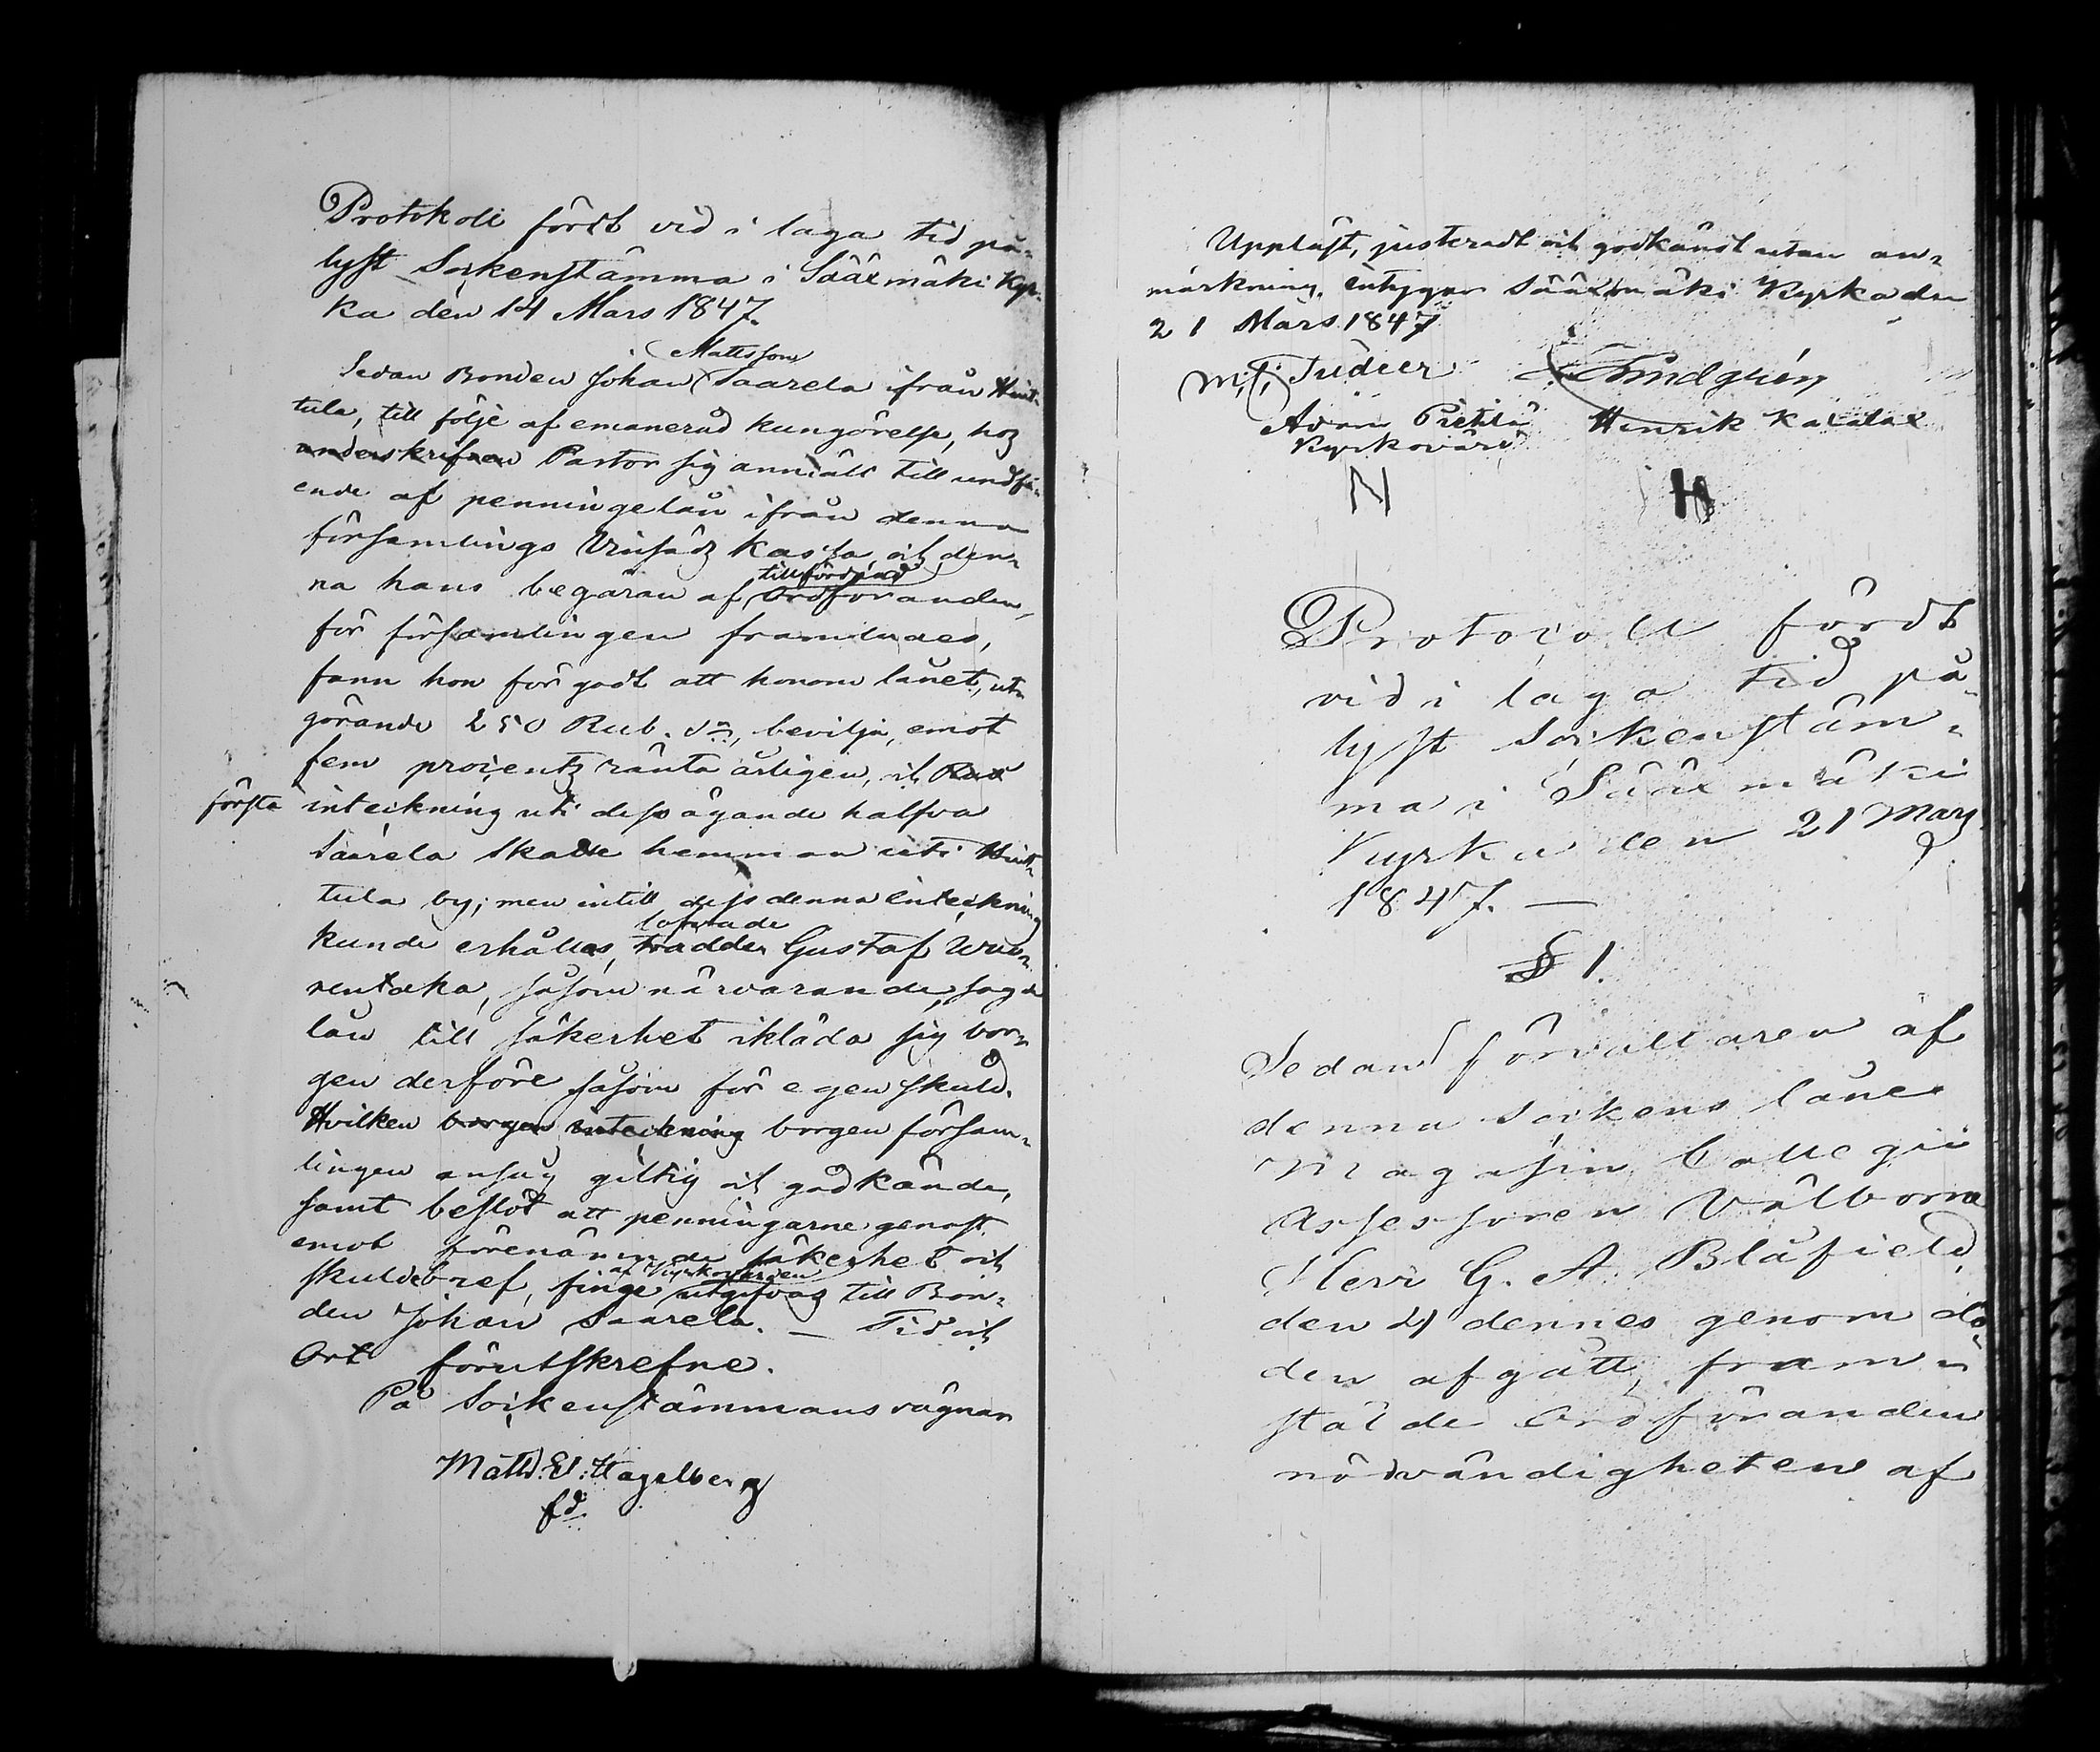 Protokoll fördt vid i laga tid på-
lyst Sockenstämma i Sääxmäki Kyr-
ka den 14 Mars 1847.
Mattsson
Sedan Bonden Johan Saarela ifrån Hint-
tula, till följe af emanerad kungörelse, hos
underskrifven Pastor sig anmält till undfå-
ende af penningelån ifrån denna
församlings kassa, och den-
tillförordnad
na hans begäran af Ordföranden,
för församlingen framlades,
fann hon för godt att honom lånet, ut-
görande 250 Rub. Sr, bevilja, emot
fem procents ränta årligen, och
första inteckning uti dess ägande halfva
Saarela Skatte hemman uti Hint-
tula by; men intill dess denna inteckning
lofvade
kunde erhållas, Gustaf
såsom närvarande, sagde
lån till säkerhet ikläda sig bor-
gen derföre såsom för egen skuld.
Hvilken borgen inteckning borgen försam-
lingen ansåg giltig och godkände,
samt beslöt att penningarne genast
emot förenämnde säkerhet och
af Kyrkovärden
skuldebref, finge utgifvas till Bon-
den Johan Saarela. — Tid och
Ort förutskrefne.
På Sockenstämmans vägnar
Math. Ed. Hagelberg
fd.
Uppläst, justeradt och godkändt utan an-
märkning, intygar Sääxmäki Kyrka den
21 Mars 1847
M. Tudeer Lindgrén
Pietilä Henrik
Kyrkovärd
N H
Protocoll fördt
vid i laga tid på-
lyst Sockenstäm-
ma i Sääxmäki
Kyrka den 21 Mars
1847. —
§ 1.
Sedan förvaltaren af
denna Sockens låne
Magasin Collegii
Assessoren Välborne
Herr G. A. Blåfield,
den 4 dennes genom dö-
den afgått, fram-
stälde Ordföranden
nödvändigheten af